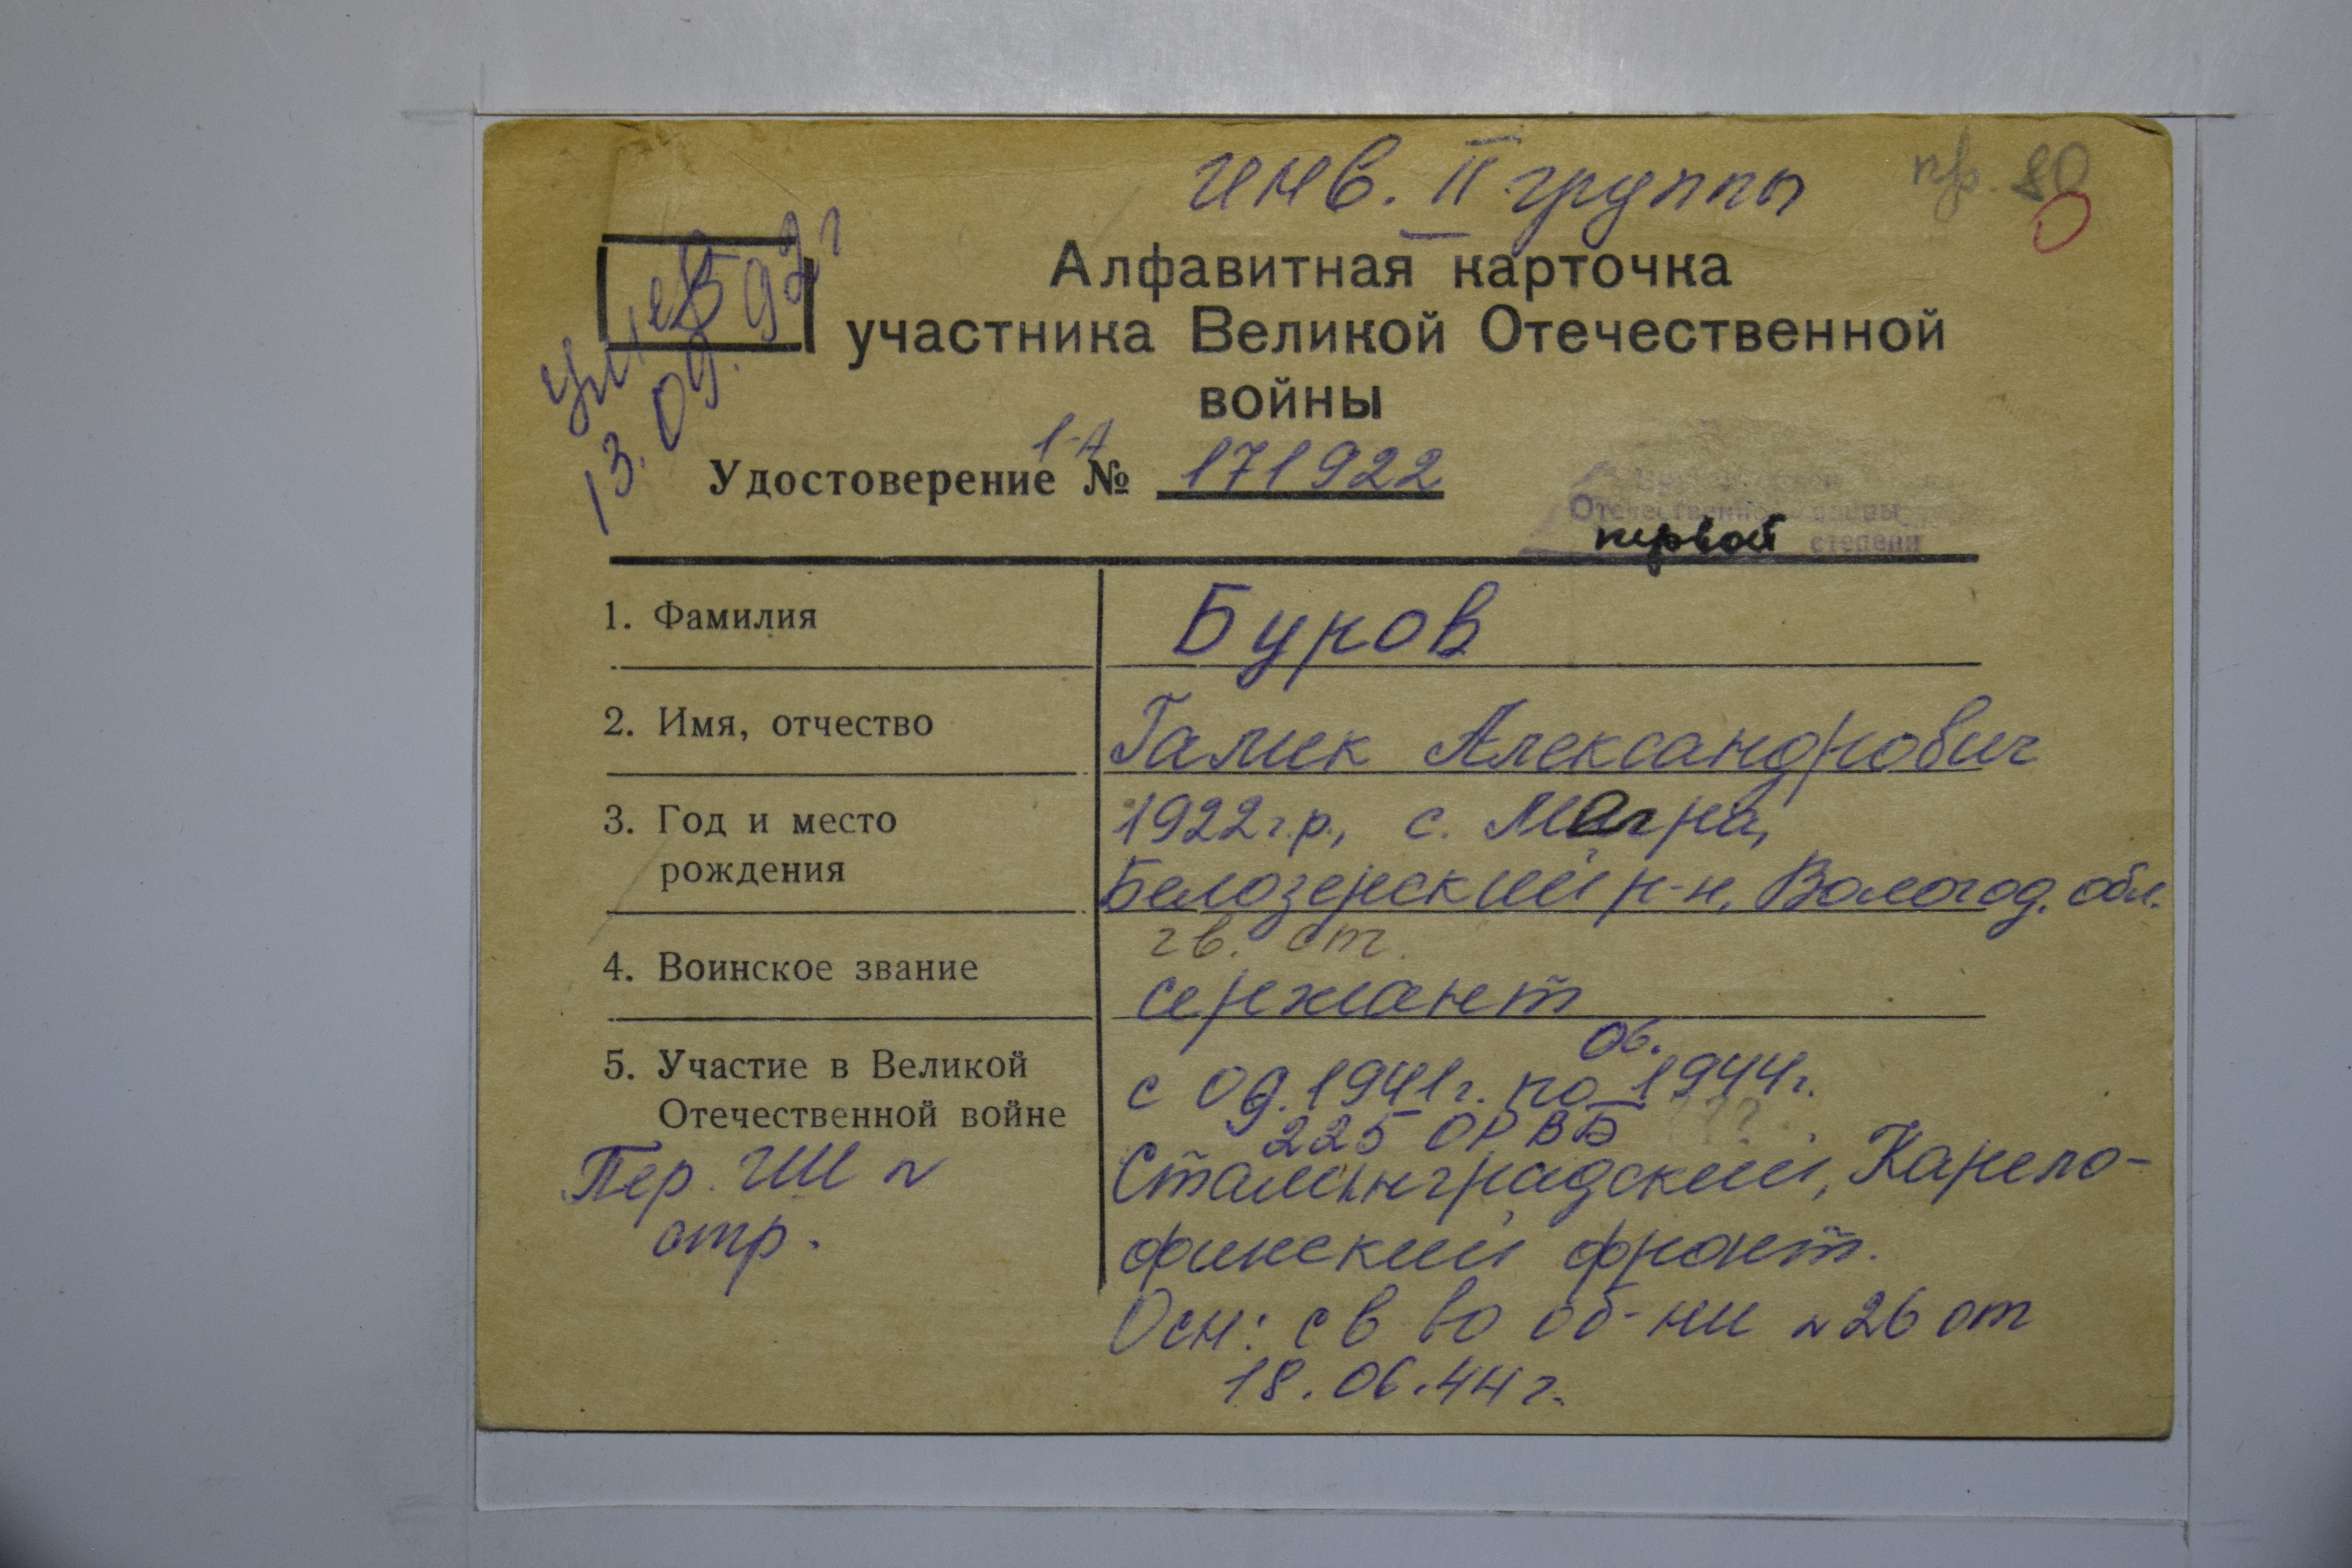 инв. II группы
пр. 80
Б
умер
13.09.92 г
Алфавитная карточка
участника Великой Отечественной
войны
1-А
Удостоверение № 171922
Отечественной войны
первой степени
1. Фамилия Буров
2. Имя, отчество Галик Александрович
3. Год и место 1922 г.р., с. Магра,
рождения Белозерский р-н, Вологод. обл.
гв. ст.
4. Воинское звание сержант
06.
5. Участие в Великой с 09.1941г. по 1944г.
Отечественной войне 225 ОРВБ
Пер. ГШ ~ Сталинградский, Карело-
отр. финский фронт.
Осн: св-во об-ни ~ 26 от
18.06.44 г.